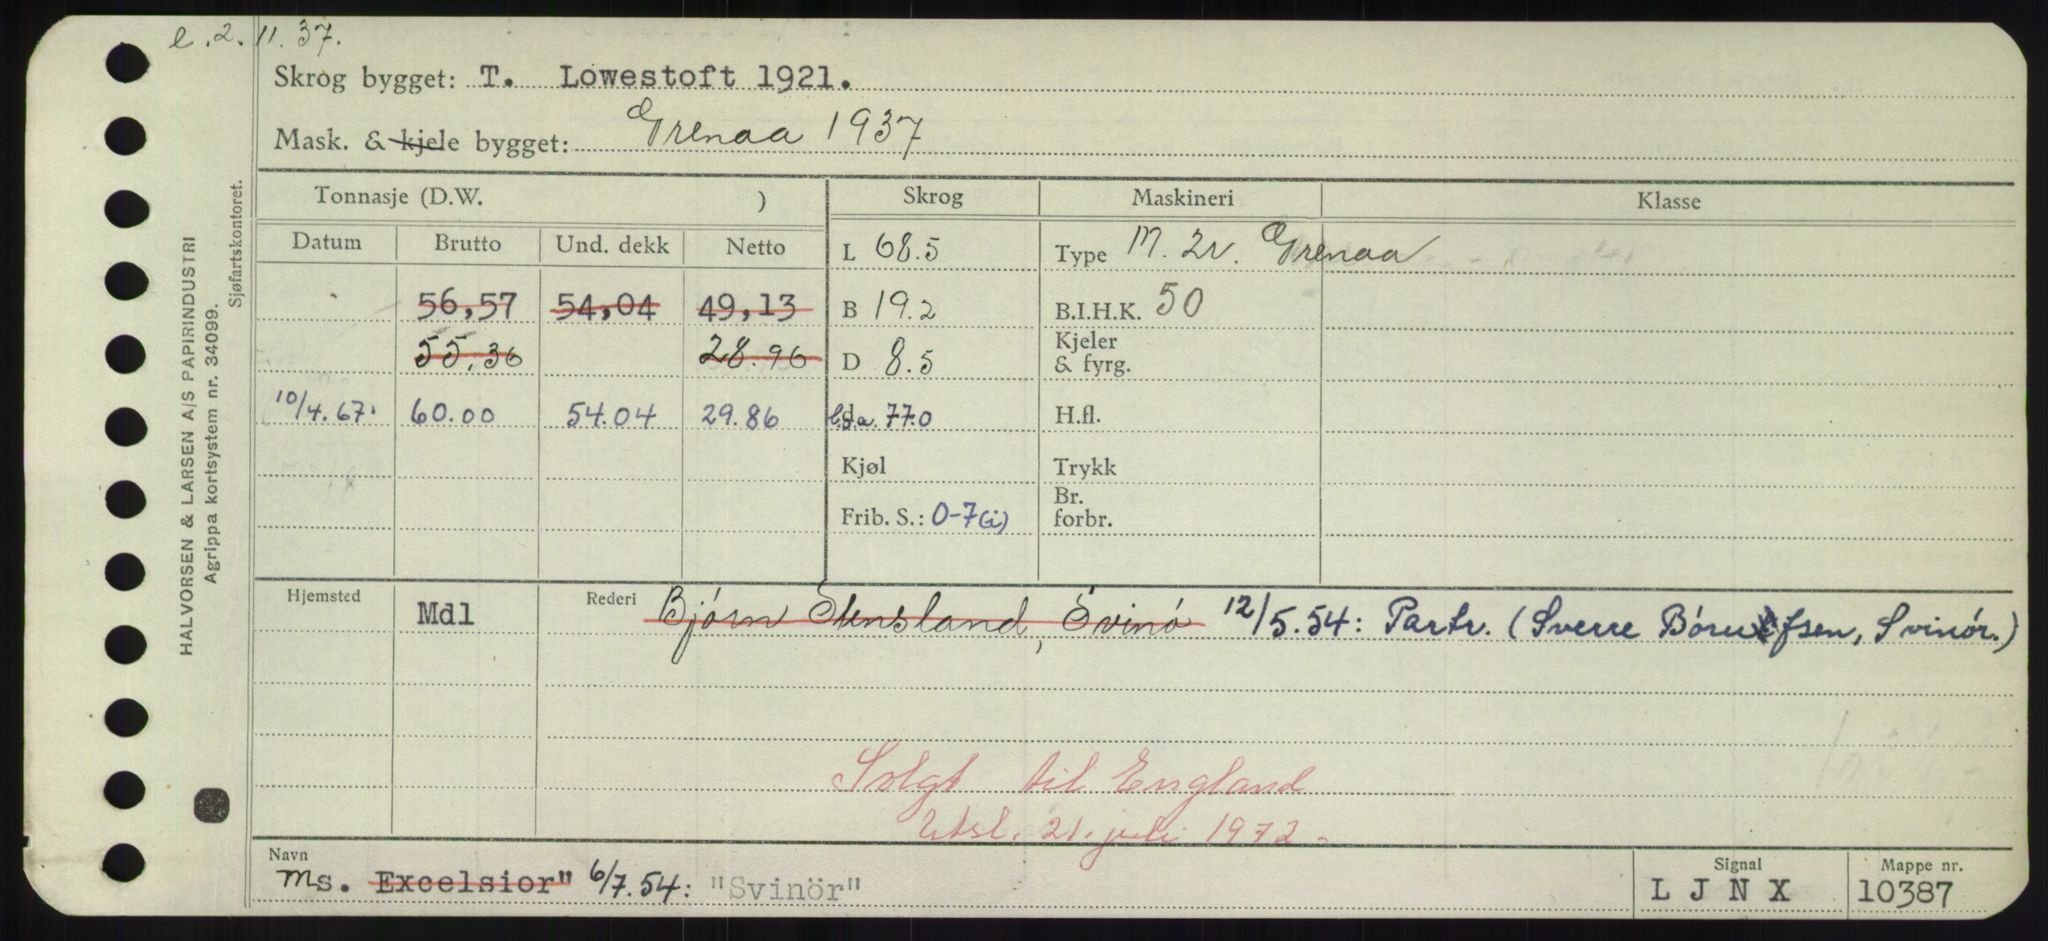 e. 2. 11. 37.
Skrog bygget: T. Lowestoft 1921.
Mask. & kjele bygget: Grenaa 1937
Tonnasje (D.W. )
Skrog
Maskineri
Klasse
Datum
Brutto
Und. dekk
Netto
L 68.5
Type M. 2v. Grenaa
56,57
54,04
49,13
B 19.2
B.I.H.K. 50
55.36
28.96
D 8.5
Kjeler
& fyrg.
10/4.67.
60.00
54.04
29.86
l.o.a. 77.0
H.fl.
Kjøl
Trykk
Frib. S.: 0-7(i)
Br.
forbr.
Hjemsted
Mdl
Rederi
Bjørn Stensland, Svinö 12/5.54: Partr. (Sverre Börufsen, Svinör.)
Solgt til England
Utsl. 21. juli 1972.
Navn
Ms. Excelsior" 6/7.54: "Svinör"
Signal
L J N X
Mappe nr.
10387
HALVORSEN & LARSEN A/S PAPIRINDUSTRI
Agrippa kortsystem nr. 34099.
Sjøfartskontoret.